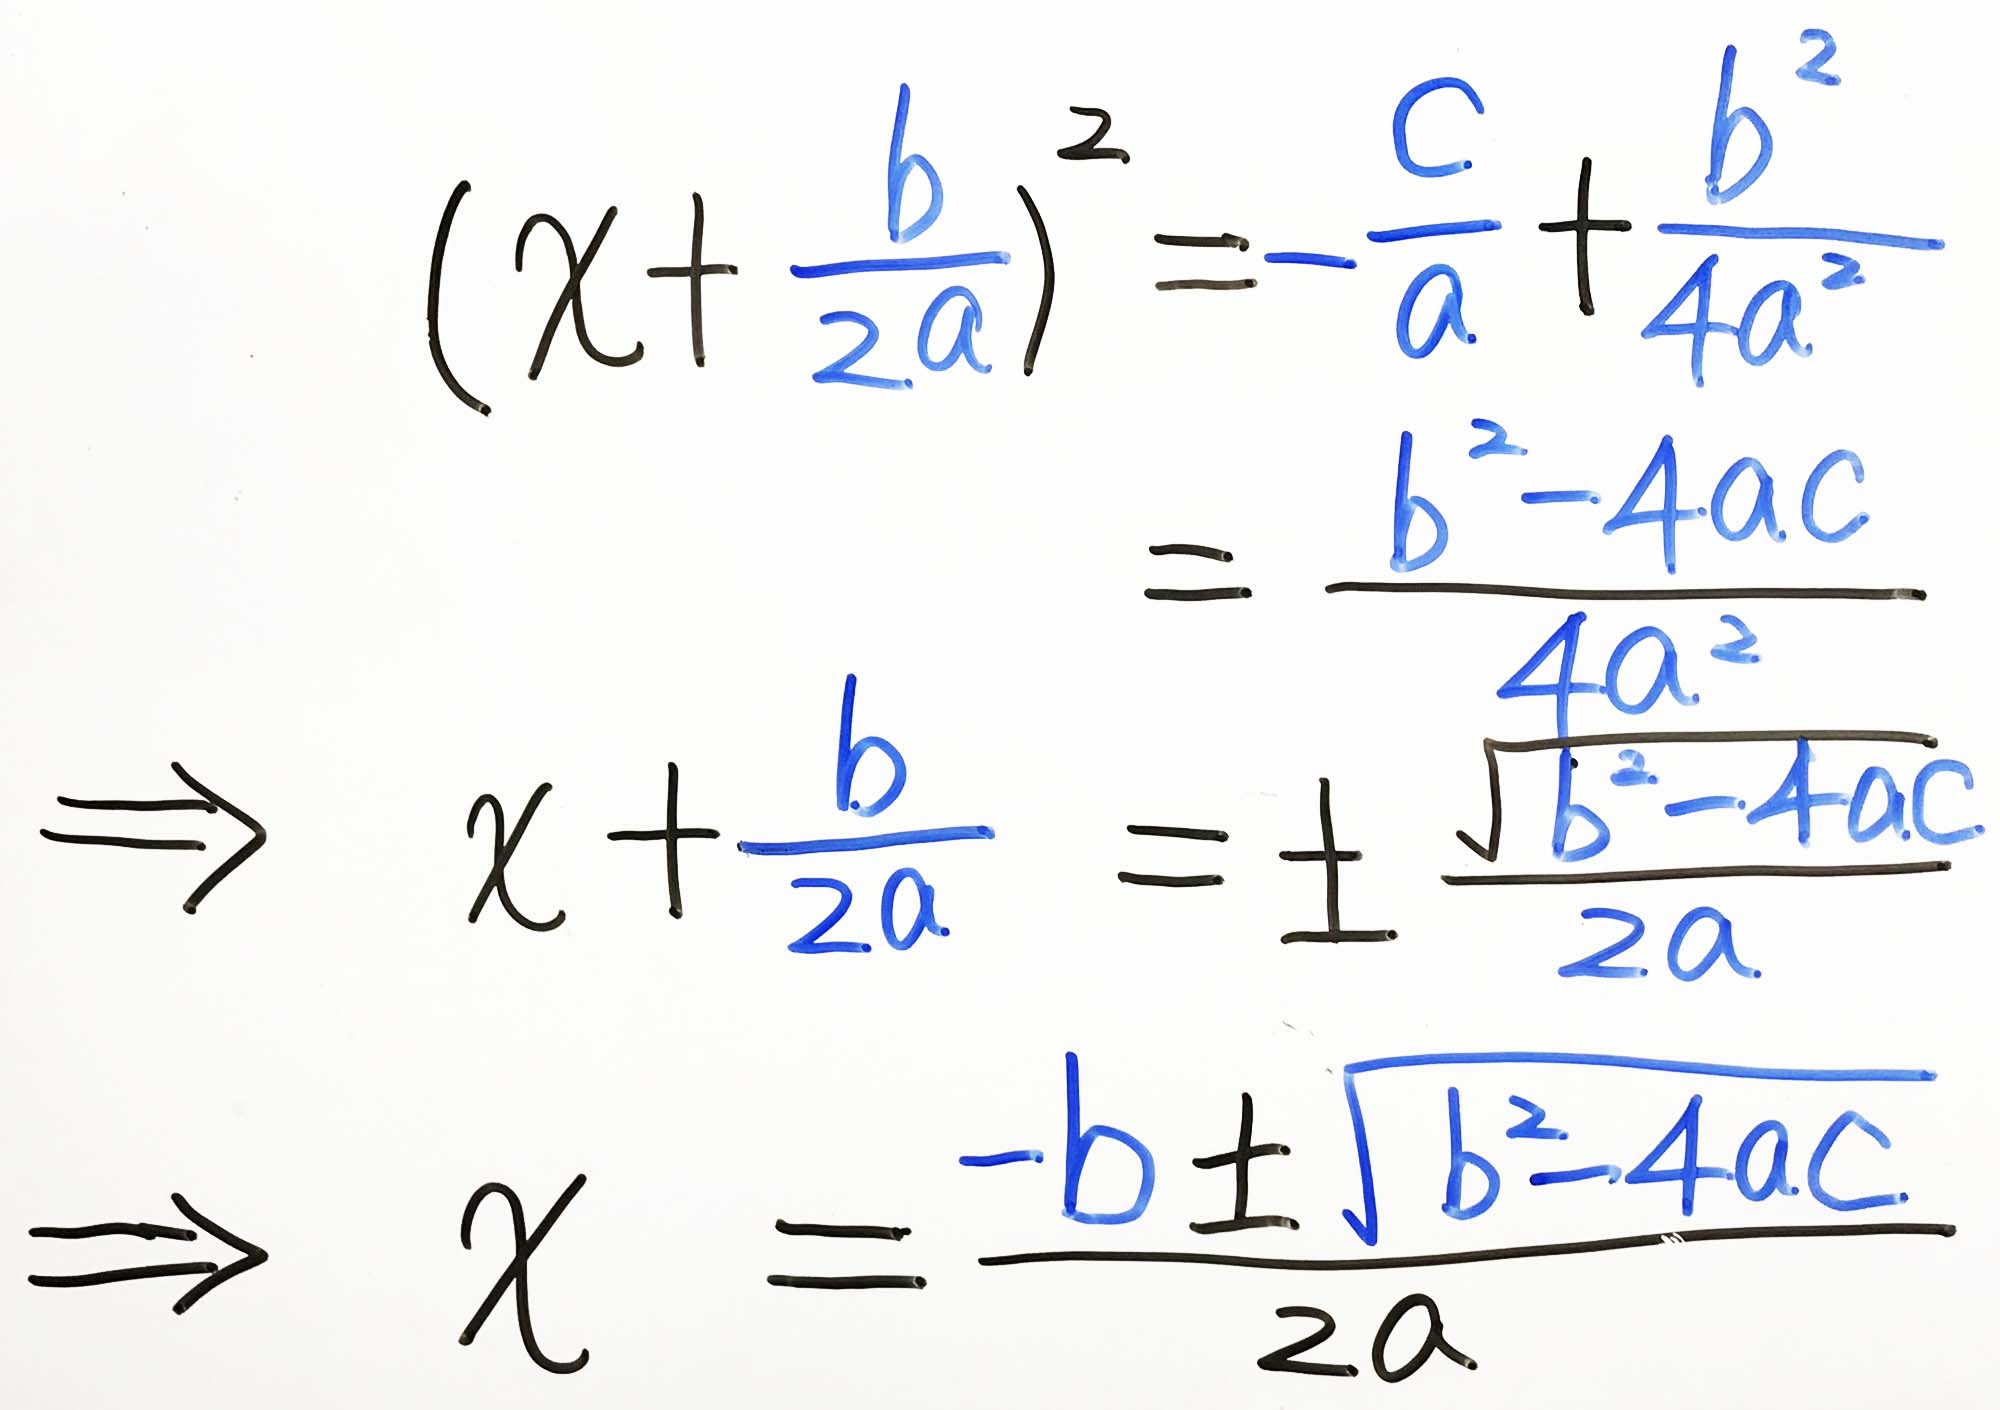 (x + b/2a)² = -c/a + b²/4a²
= b² - 4ac/4a²
⇒ x + b/2a = ± √(b² - 4ac)/2a
⇒ x = -b ± √(b² - 4ac)/2a